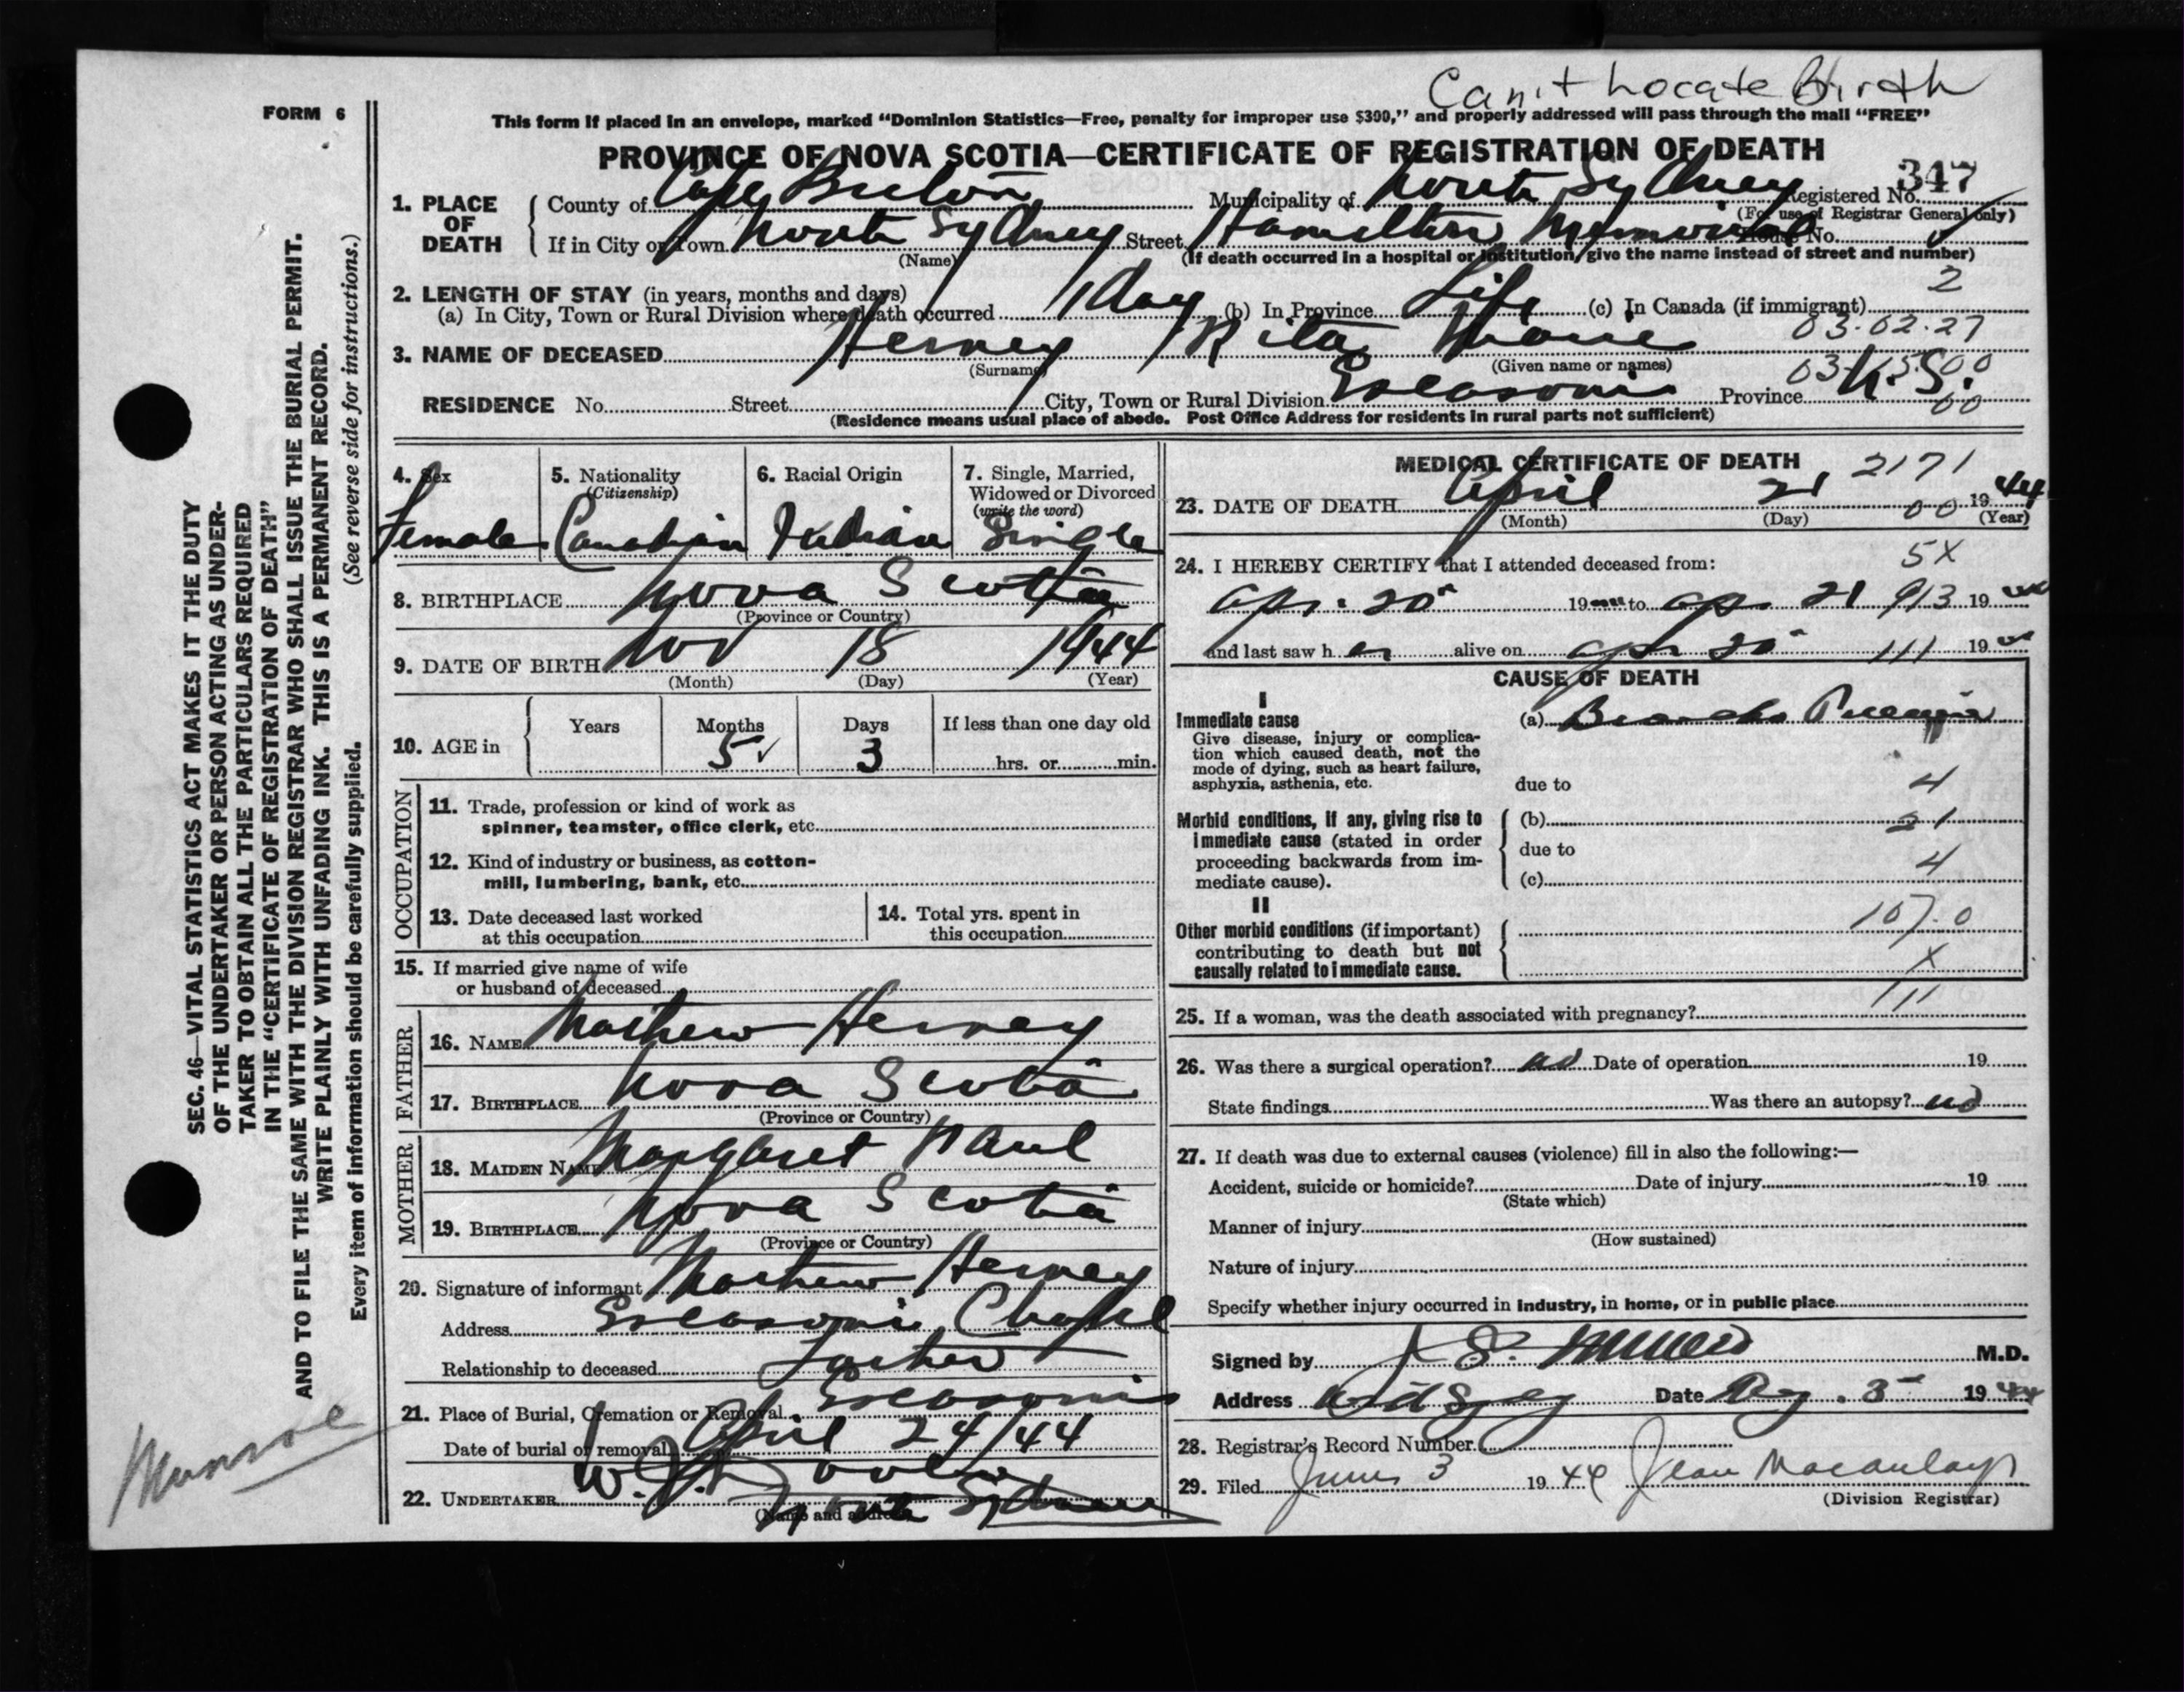 Can't Locate Birth
FORM 6
This form if placed in an envelope, marked "Dominion Statistics—Free, penalty for improper use $300," and properly addressed will pass through the mail "FREE"
PROVINCE OF NOVA SCOTIA—CERTIFICATE OF REGISTRATION OF DEATH
347
1. PLACE OF DEATH
County of Cape Breton Municipality of North Sydney Registered No.
(For use of Registrar General only)
If in City or Town North Sydney Street Hamilton Memorial House No.
(Name) (If death occurred in a hospital or institution, give the name instead of street and number)
2. LENGTH OF STAY (in years, months and days) 2
(a) In City, Town or Rural Division where death occurred 1 Day (b) In Province Life (c) In Canada (if immigrant)
03-02-27
3. NAME OF DECEASED Herney Rita Marie
(Surname) (Given name or names)
RESIDENCE No. Street City, Town or Rural Division Escasoni Province N.S.
00
(Residence means usual place of abode. Post Office Address for residents in rural parts not sufficient)
4. Sex 5. Nationality 6. Racial Origin 7. Single, Married,
(Citizenship) Widowed or Divorced
(write the word)
Female Canadian Indian Single
8. BIRTHPLACE Nova Scotia
(Province or Country)
9. DATE OF BIRTH Nov 18 1944
(Month) (Day) (Year)
10. AGE in Years Months Days If less than one day old
5 ✓ 3 hrs. or min.
OCCUPATION
11. Trade, profession or kind of work as
spinner, teamster, office clerk, etc.
12. Kind of industry or business, as cotton-
mill, lumbering, bank, etc.
13. Date deceased last worked 14. Total yrs. spent in
at this occupation this occupation
15. If married give name of wife
or husband of deceased
FATHER
16. NAME Mathew Herney
17. BIRTHPLACE Nova Scotia
(Province or Country)
MOTHER
18. MAIDEN NAME Margaret Paul
19. BIRTHPLACE Nova Scotia
(Province or Country)
20. Signature of informant Mathew Herney
Address Escasoni Chapel
Relationship to deceased Father
21. Place of Burial, Cremation or Removal Escasoni
Date of burial or removal April 24/44
22. UNDERTAKER W. J. Dooley
North Sydney
(Name and address)
MEDICAL CERTIFICATE OF DEATH 2171
23. DATE OF DEATH April 21 00 1944
(Month) (Day) (Year)
24. I HEREBY CERTIFY that I attended deceased from: 5X
Apr. 20 19 44 to Apr 21 913 19 44
and last saw her alive on Apr 20 111 19 44
CAUSE OF DEATH
I
Immediate cause (a) Broncho
Give disease, injury or complica-
tion which caused death, not the
mode of dying, such as heart failure,
asphyxia, asthenia, etc. due to 4
Morbid conditions, if any, giving rise to (b) 21
immediate cause (stated in order due to
proceeding backwards from im- 4
mediate cause). (c)
II
107.0
Other morbid conditions (if important)
contributing to death but not
causally related to immediate cause. X
111
25. If a woman, was the death associated with pregnancy?
26. Was there a surgical operation? no Date of operation 19
State findings Was there an autopsy? no
27. If death was due to external causes (violence) fill in also the following:—
Accident, suicide or homicide? Date of injury 19
(State which)
Manner of injury
(How sustained)
Nature of injury
Specify whether injury occurred in industry, in home, or in public place
Signed by M.D.
Address Date 19 44
28. Registrar's Record Number
29. Filed June 3 1944 Jean Macaulay
(Division Registrar)
SEC. 46—VITAL STATISTICS ACT MAKES IT THE DUTY
OF THE UNDERTAKER OR PERSON ACTING AS UNDER-
TAKER TO OBTAIN ALL THE PARTICULARS REQUIRED
IN THE "CERTIFICATE OF REGISTRATION OF DEATH"
AND TO FILE THE SAME WITH THE DIVISION REGISTRAR WHO SHALL ISSUE THE BURIAL PERMIT.
WRITE PLAINLY WITH UNFADING INK. THIS IS A PERMANENT RECORD.
(See reverse side for instructions.)
Every item of information should be carefully supplied.
Munroe